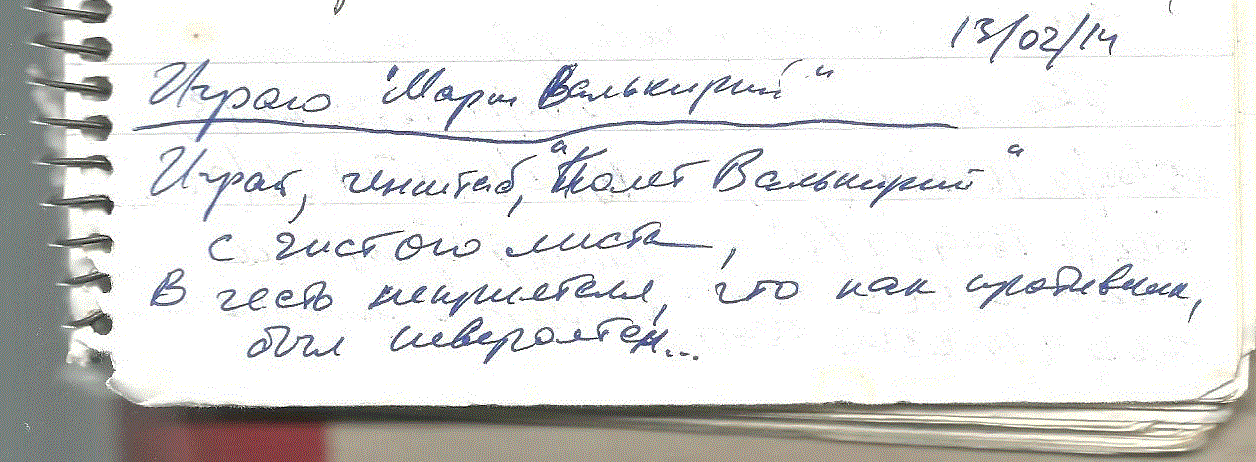 13/02/14
Играю "Марш Валькирий"
Играй, генштаб, "Полет Валькирий"
с чистого листа,
В честь неприятеля, что как противник,
был невероятен...